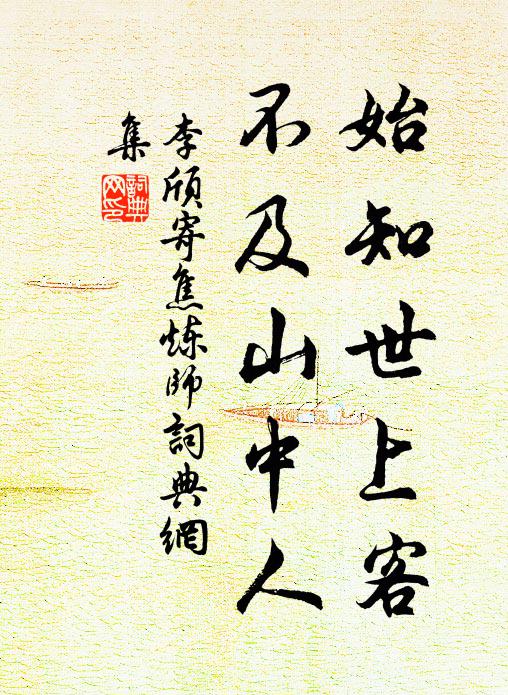 始知世上客
不及山中人
李頎寄焦炼師詞典網
集
詞典
网印